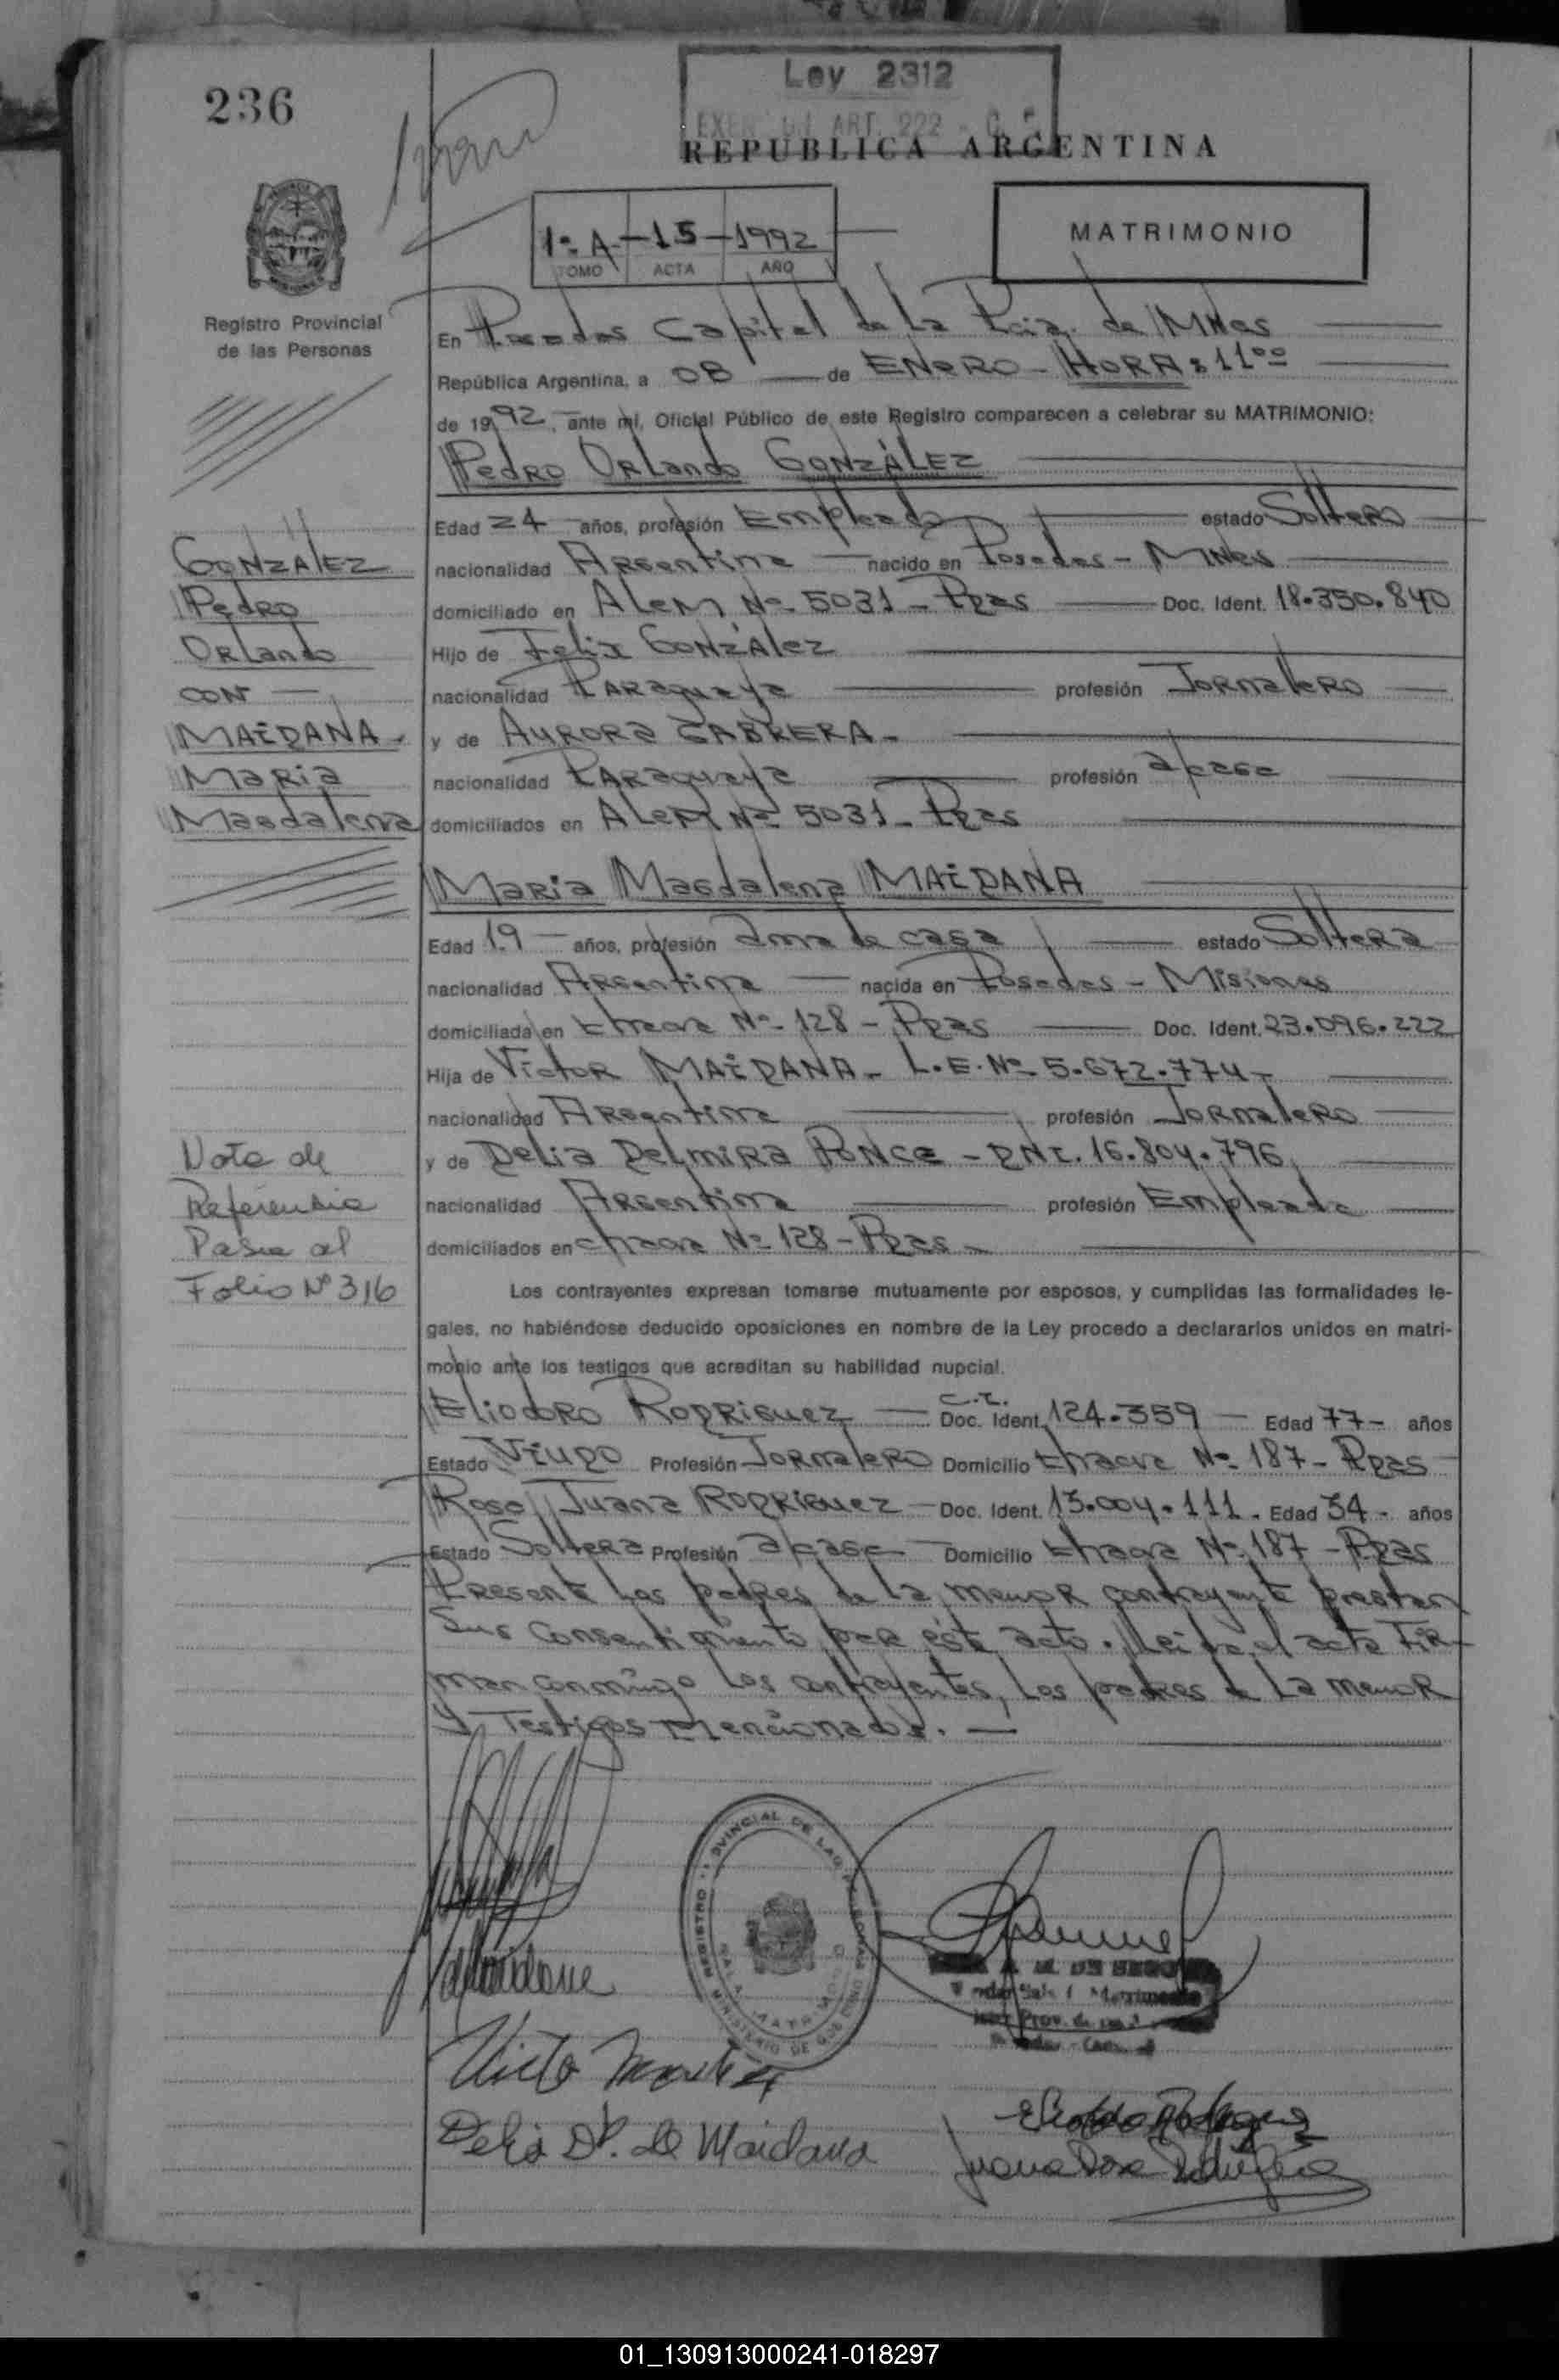 236
Ley 2312
ART. 222
REPUBLICA ARGENTINA
1º A - 15 - 1992
TOMO ACTA AÑO
MATRIMONIO
Registro Provincial
de las Personas
En Posadas Capital de La Pcia. de Mnes
República Argentina, a 08 de ENERO - HORA: 11ºº
de 1992, ante mí, Oficial Público de este Registro comparecen a celebrar su MATRIMONIO:
Pedro Orlando GONZÁLEZ
Edad 24 años, profesión Empleado estado Soltero
nacionalidad Argentina nacido en Posadas - Mnes
domiciliado en Alem Nº 5031 - Pdas Doc. Ident. 18.350.840
Hijo de Felix GONZÁlez
nacionalidad Paraguaya profesión Jornalero
y de Aurora CABRERA.
nacionalidad Paraguaya profesión a/casa
domiciliados en Alem Nº 5031 - Pdas
GONZÁlEZ
Pedro
Orlando
CON
MAIDANA.
Maria
Magdalena
Maria Magdalena MAIDANA
Edad 19 años, profesión ama de casa estado Soltera
nacionalidad Argentina nacida en Posadas - Misiones
domiciliada en Chacra Nº 128 - Pdas Doc. Ident. 23.096.222
Hija de Victor MAIDANA - L.E. Nº 5.672.774 -
nacionalidad Argentina profesión Jornalero
y de Delia Delmira Ponce - DNI. 16.804.796
nacionalidad Argentina profesión Empleada
domiciliados en Chacra Nº 128 - Pdas -
Nota de
Referencia
Pasa al
Folio Nº 316
Los contrayentes expresan tomarse mutuamente por esposos, y cumplidas las formalidades le-
gales, no habiéndose deducido oposiciones en nombre de la Ley procedo a declararlos unidos en matri-
monio ante los testigos que acreditan su habilidad nupcial.
Eliodoro Rodriguez C.I. Doc. Ident. 124.359 Edad 77 - años
Estado Viudo Profesión Jornalero Domicilio Chacra Nº 187 - Pdas
Rosa Juana Rodriguez - Doc. Ident. 13.004.111. Edad 34 - años
Estado Soltera Profesión a/casa Domicilio Chacra Nº 187 - Pdas
Presente Los padres de La menor contrayente prestan
Sus Consentimiento par éste acto. Leida el acta Fir-
man conmigo Los contrayentes, Los padres de La menor
y Testigos mencionados. -
REGISTRO PROVINCIAL DE LAS PERSONAS
SALA MATRIMONIO
MINISTERIO DE GOBIERNO
Maidana
Delia D P. de Maidana
Juana Rosa Rodriguez
01_130913000241-018297